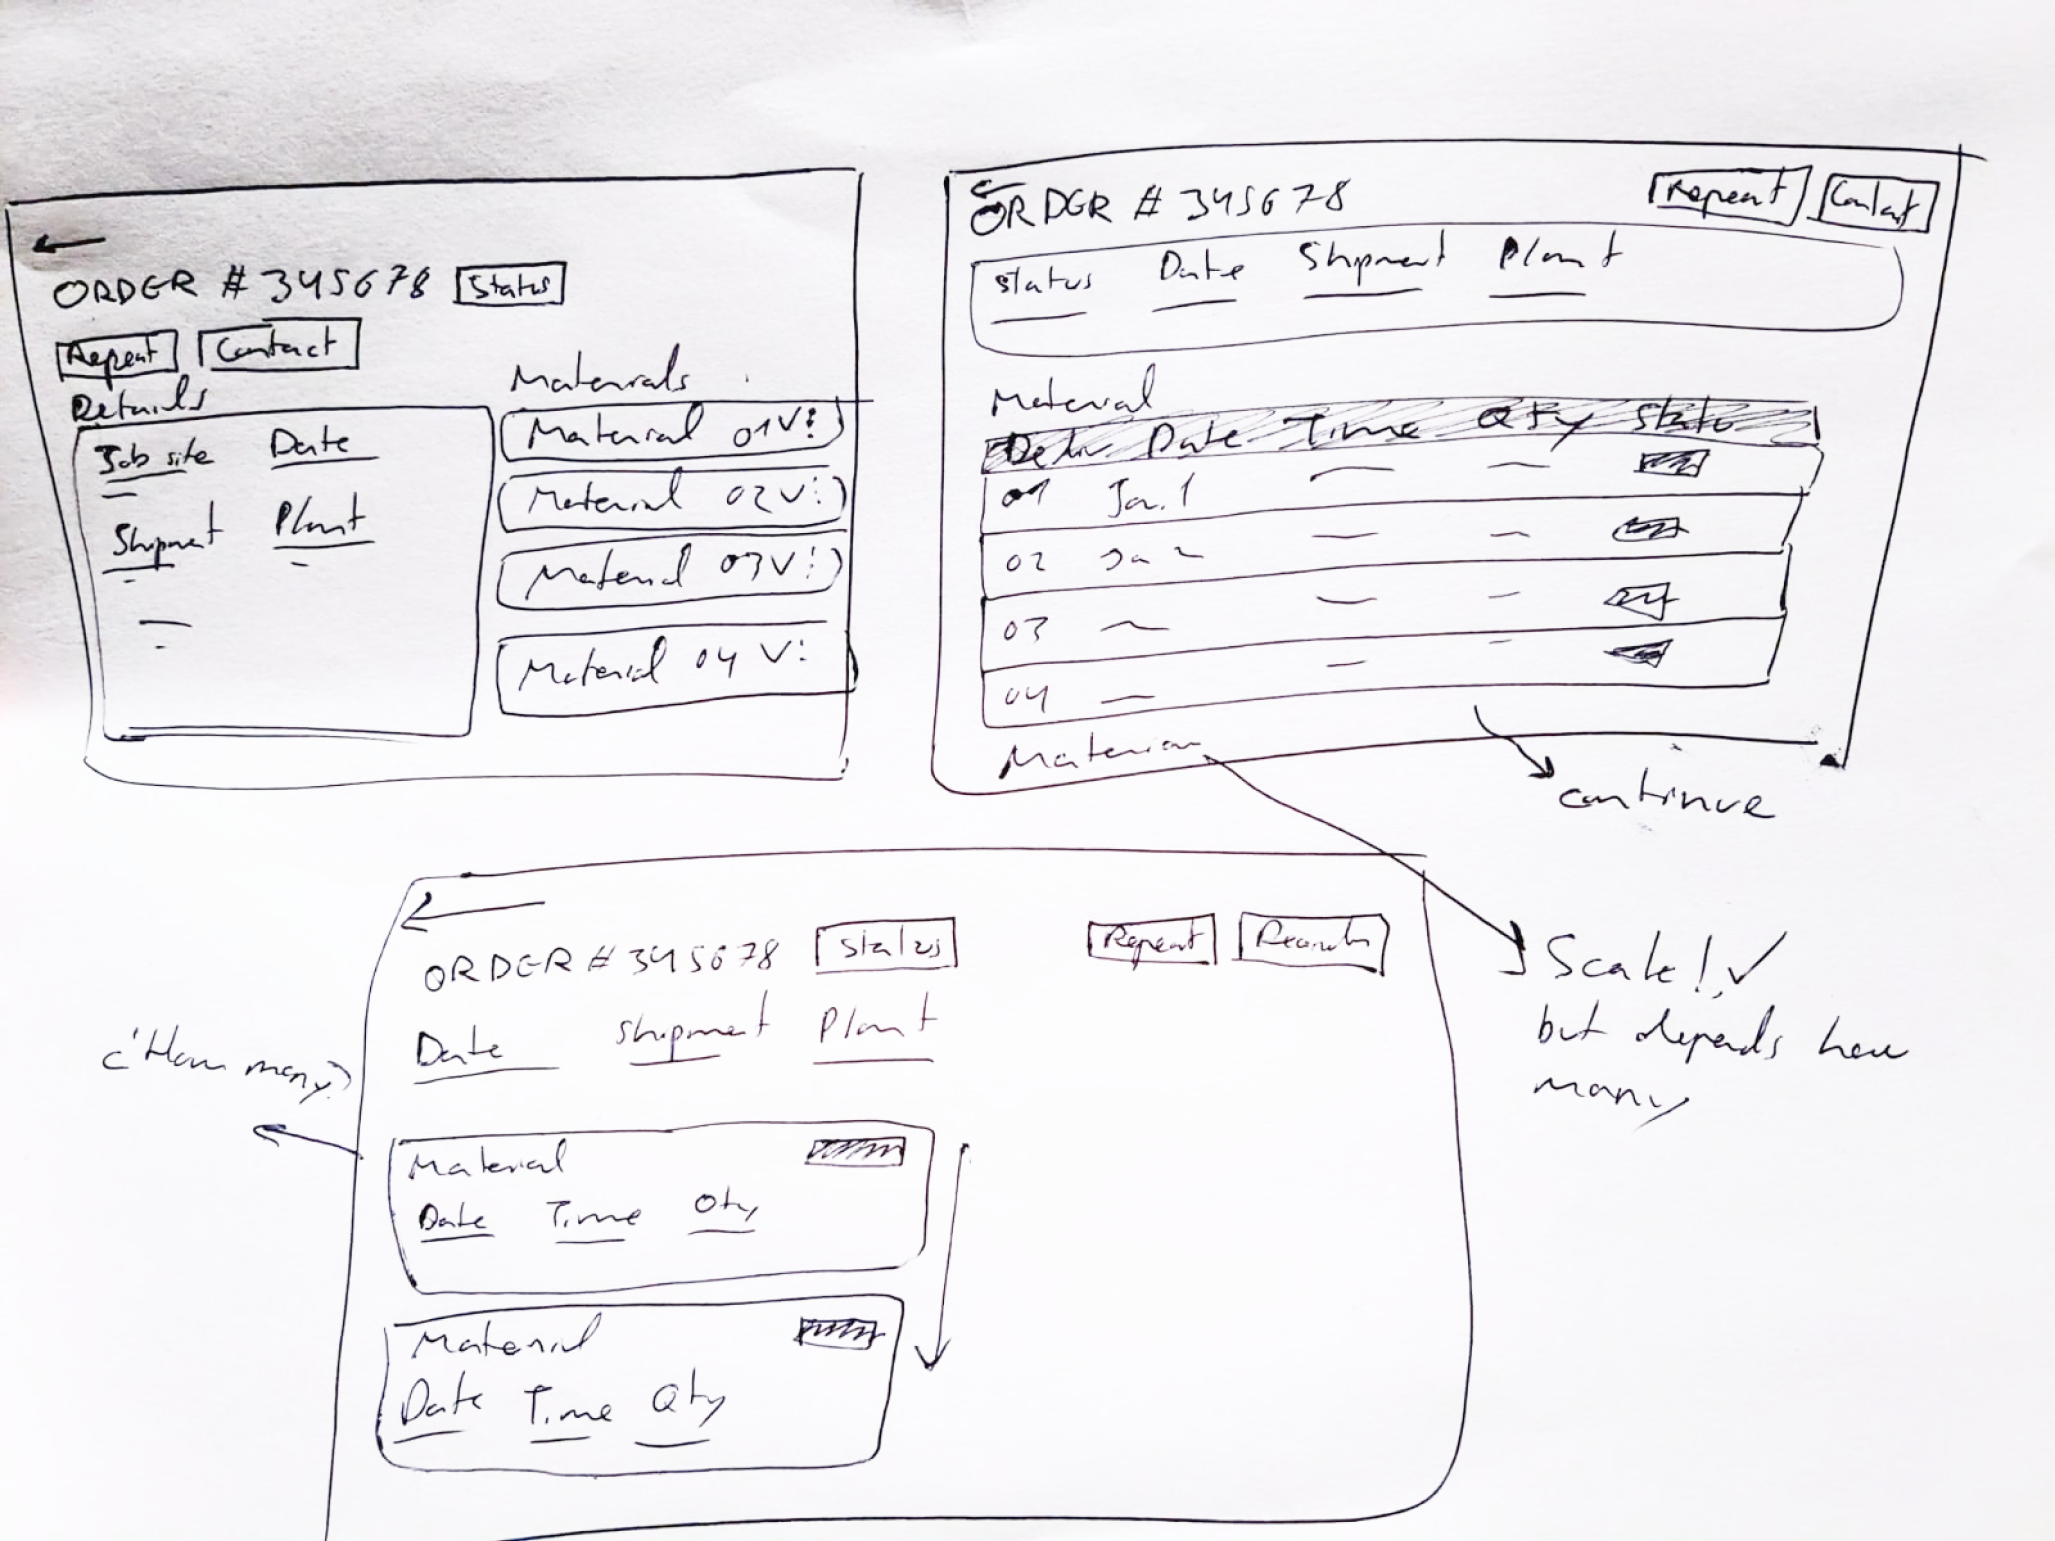 ORDER # 345678 Status
Repeat Contact
Details
Job site Date
Shipment Plant
Materials
Material 01 V⋮
Material 02 V⋮
Material 03 V⋮
Material 04 V⋮
ORDER # 345678 Repeat Contact
Status Date Shipment Plant
Material
Date Time Qty Status
01 Ja. 1
02 Ja 2
03
04
continue
Scale! ✓
but depends how
many
ORDER # 345678 Status Repeat
Date Shipment Plant
¿How many?
Material
Date Time Qty
Material
Date Time Qty